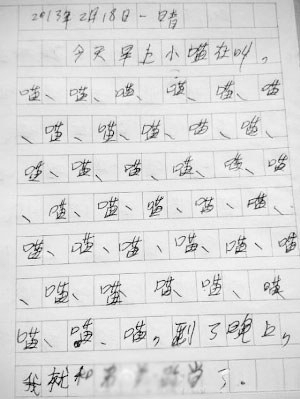 2013年2月18日 一 晴
今天早上小喵在叫，
喵、喵、喵、喵、喵、喵
、喵、喵、喵、喵、喵、
喵、喵、喵、喵、喵、喵
、喵、喵、喵、喵、喵、
喵、喵、喵、喵、喵、喵
、喵、喵、喵、喵、喵
喵、喵、喵，到了晚上，
我就和了。